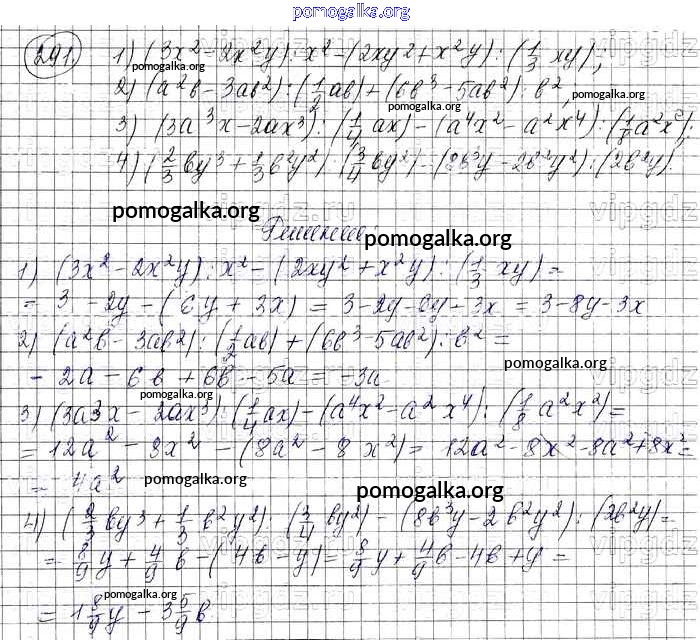 pomogalka.org
291. 1) (3x² - 2x²y) : x² - (2xy² + x²y) : (1/3 xy);
2) (a²b - 3ab²) : (1/2 ab) + (6b³ - 5ab²) : b²,
3) (3a³x - 2ax³) : (1/4 ax) - (a⁴x² - a²x⁴) : (1/8 a²x²);
4) (2/3 by³ + 1/3 b²y²) : (3/4 by²) - (8b³y - 2b²y²) : (2b²y).
pomogalka.org
Решение:
pomogalka.org
1) (3x² - 2x²y) : x² - (2xy² + x²y) : (1/3 xy) =
= 3 - 2y - (6y + 3x) = 3 - 2y - 6y - 3x = 3 - 8y - 3x
2) (a²b - 3ab²) : (1/2 ab) + (6b³ - 5ab²) : b² =
- 2a - 6b + 6b - 5a = -3a
3) (3a3x - 2ax³) : (1/4 ax) - (a⁴x² - a²x⁴) : (1/8 a²x²) =
= 12a² - 8x² - (8a² - 8x²) = 12a² - 8x² - 8a² + 8x² =
= 4a²
pomogalka.org
4) (2/3 by³ + 1/3 b²y²) : (3/4 by²) - (8b³y - 2b²y²) : (2b²y) =
= 8/9 y + 4/9 b - (4b - y) = 8/9 y + 4/9 b - 4b + y =
= 1 8/9 y - 3 5/9 b